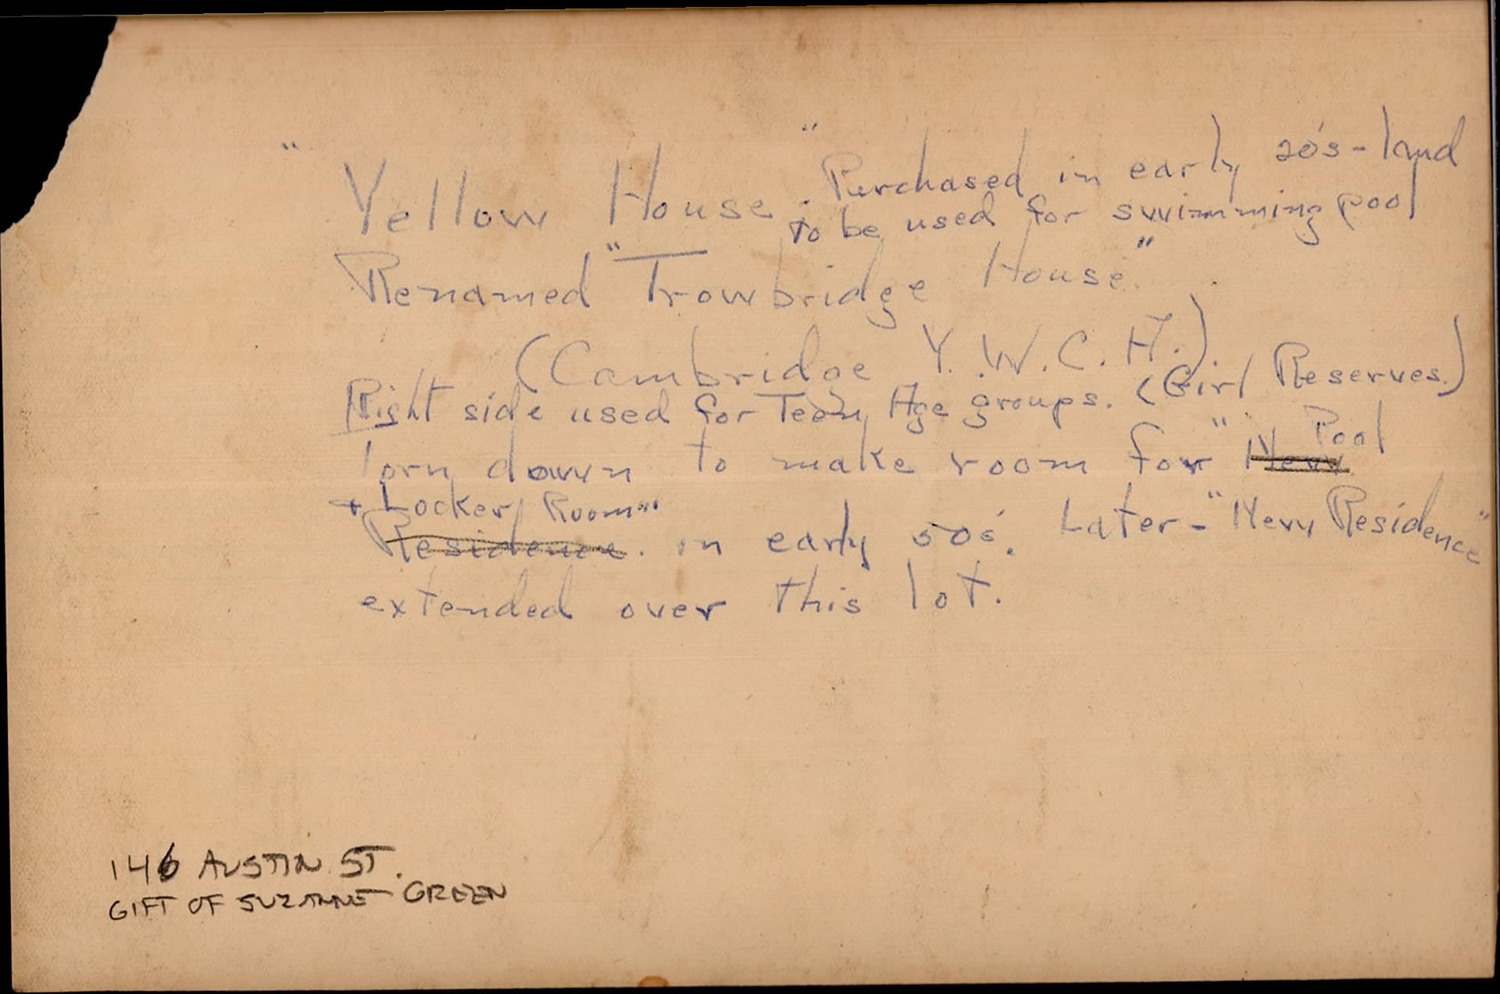 "Yellow House". Purchased in early 20's - land
to be used for swimming pool
Renamed "Trowbridge House".
(Cambridge Y.W.C.A.).
Right side used for Teen Age groups. (Girl Reserves.)
Torn down to make room for "New Pool
+ Locker Room"
Residence. in early 50s. Later - "New Residence"
extended over this lot.
146 AUSTIN ST.
GIFT OF SUZANNE GREEN